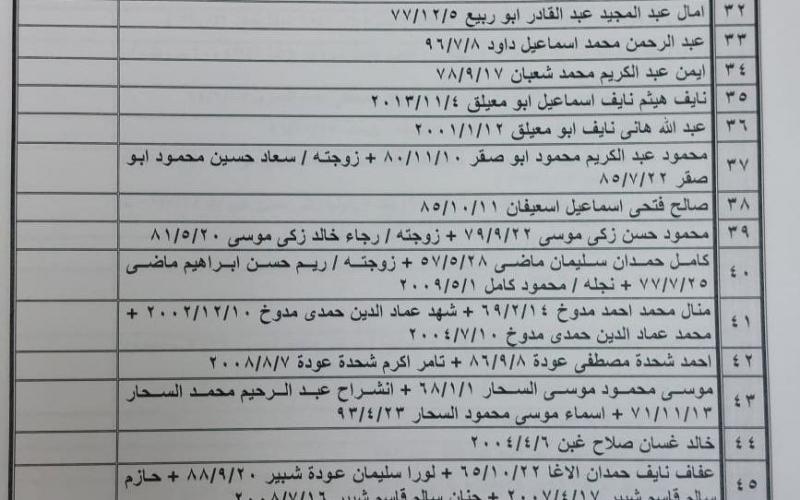 ٣٢ امال عبد المجيد عبد القادر ابو ربيع ٧٧/١٢/٥
٣٣ عبد الرحمن محمد اسماعيل داود ٩٦/٧/٨
٣٤ ايمن عبد الكريم محمد شعبان ٧٨/٩/١٧
٣٥ نايف هيثم نايف اسماعيل ابو معيلق ٢٠١٣/١١/٤
٣٦ عبد الله هانى نايف ابو معيلق ٢٠٠١/١/١٢
٣٧ محمود عبد الكريم محمود ابو صقر ٨٠/١١/١٠ + زوجته / سعاد حسين محمود ابو
صقر ٨٥/٧/٢٢
٣٨ صالح فتحى اسماعيل اسعيفان ٨٥/١٠/١١
٣٩ محمود حسن زكى موسى ٧٩/٩/٢٢ + زوجته / رجاء خالد زكى موسى ٨١/٥/٢٠
٤٠ كامل حمدان سليمان ماضى ٥٧/٥/٢٨ + زوجته / ريم حسن ابراهيم ماضى
٧٧/٧/٢٥ + نجله / محمود كامل ٢٠٠٩/٥/١
٤١ منال محمد احمد مدوخ ٦٩/٢/١٤ + شهد عماد الدين حمدى مدوخ ٢٠٠٢/١٢/١٠ +
محمد عماد الدين حمدى مدوخ ٢٠٠٤/٧/١٠
٤٢ احمد شحدة مصطفى عودة ٨٦/٩/٨ + تامر اكرم شحدة عودة ٢٠٠٨/٨/٧
٤٣ موسى محمود موسى السحار ٦٨/١/١ + انشراح عبد الرحيم محمد السحار
٧١/١١/١٣ + اسماء موسى محمود السحار ٩٣/٤/٢٣
٤٤ خالد غسان صلاح غبن ٢٠٠٤/٤/٦
٤٥ عفاف نايف حمدان الاغا ٦٥/١٠/٢٢ + لورا سليمان عودة شبير ٨٨/٩/٢٠ + حازم
سالم قاسم شبير ٢٠٠٧/٤/١٧ + حنان سالم قاسم شبير ٢٠٠٨/٧/١٦